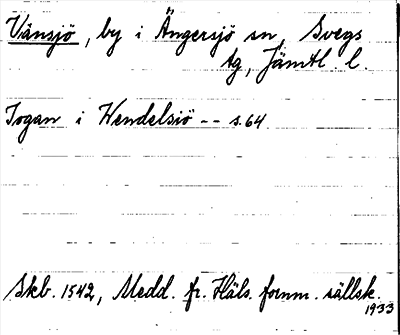 Vänsjö, by i Ängersjö sn, Svegs
tg, Jämtl. l.
Jogan i Wendelsiö -- s.64
Skb. 1542, Medd. fr. Häls. fornm. sällsk.
1933